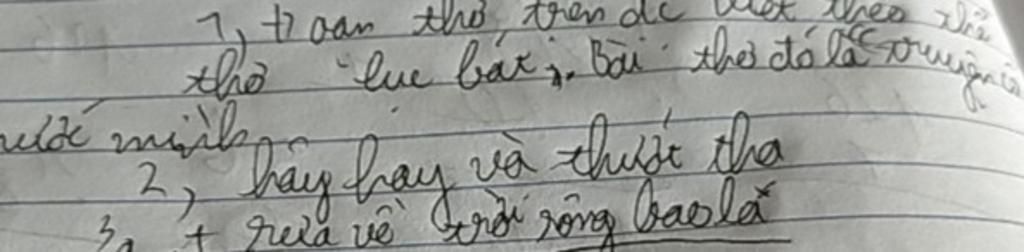 1, Đoạn thơ trên đc viết theo thể
thơ lục bát, Bài thơ đó là truyện cổ
nước mình
2, hây hẩy và thướt tha
3, + rửa về trời rộng bao la